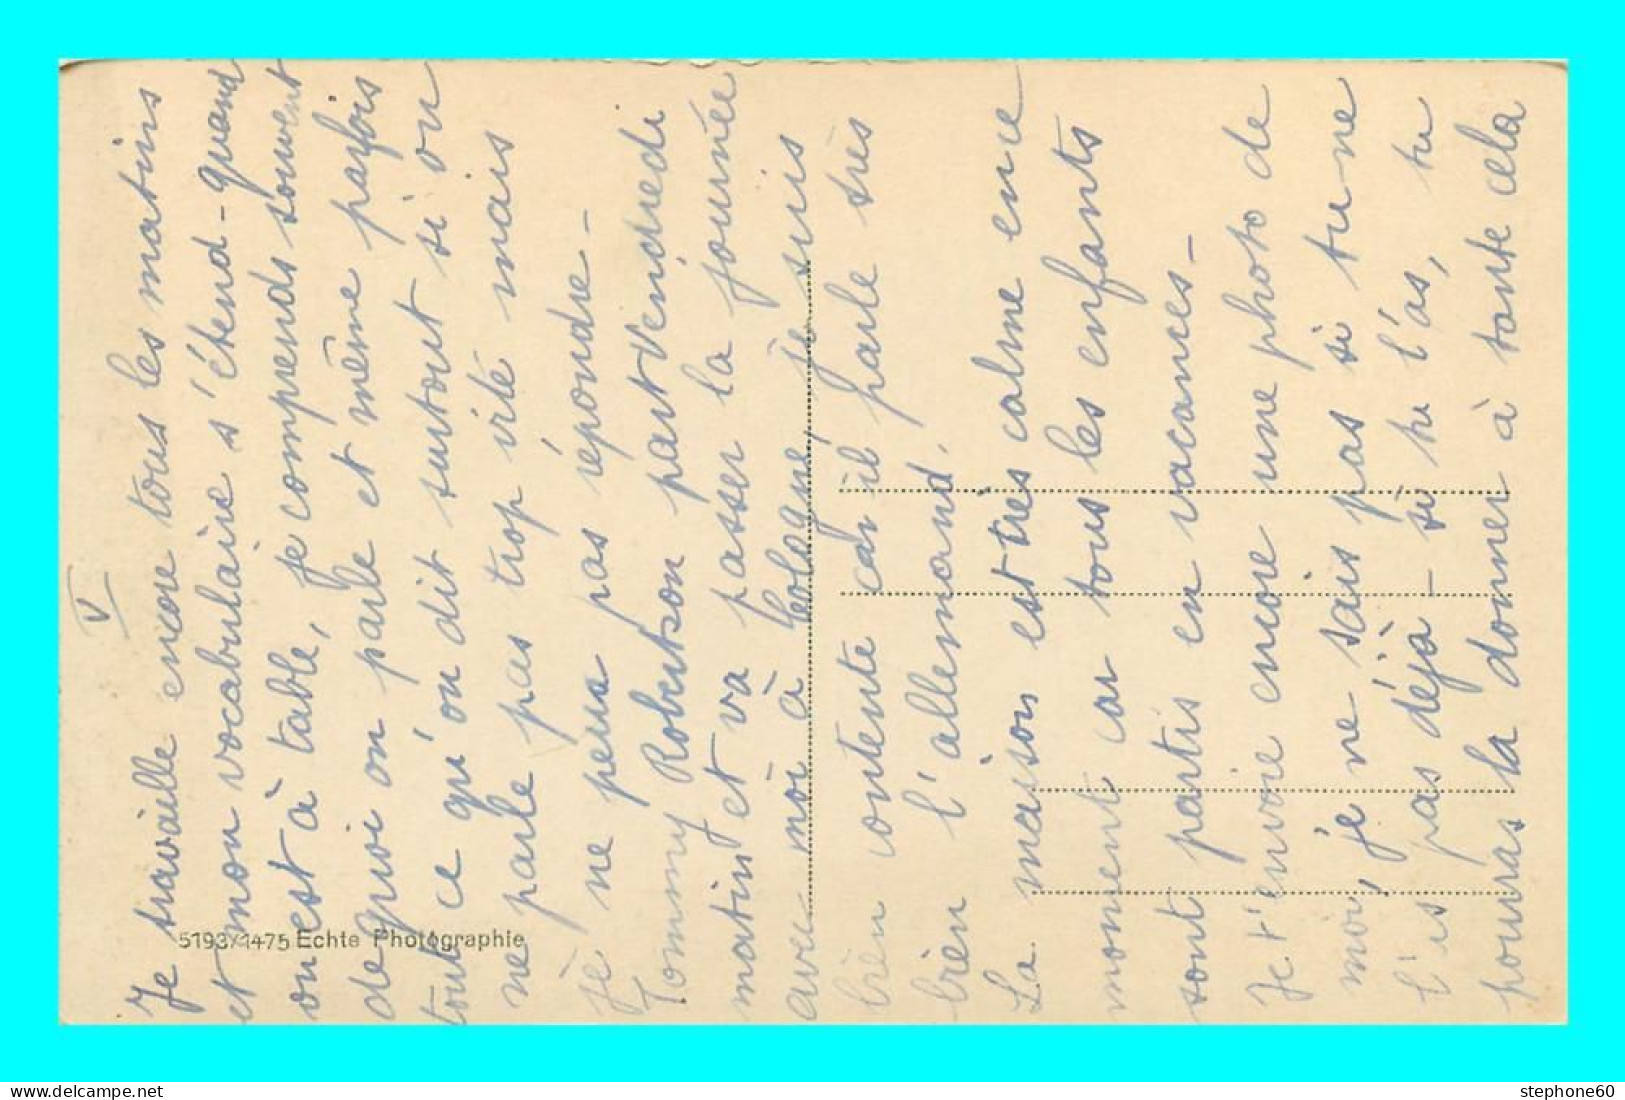 V
Je travaille encore tous les matins
et mon vocabulaire s'étend - quand
on est à table, je comprends souvent
de quoi on parle et même parfois
tout ce qu'on dit surtout si on
ne parle pas trop vite mais
je ne peux pas répondre -
Tommy Robertson part Vendredi
matin et va passer la journée
avec moi à Cologne, je suis
bien contente car il parle très
bien l'allemand.
La maison est très calme en ce
moment car tous les enfants
sont partis en vacances -
Je t'envoie encore une photo de
moi, je ne sais pas si tu ne
l'as pas déjà - si tu l'as, tu
pourras la donner à tante cela
5193/1475 Echte Photographie
stephone60